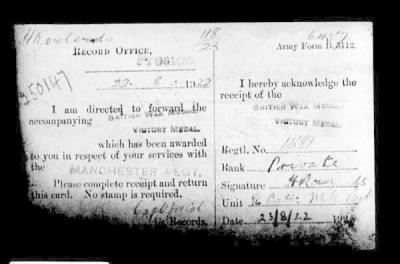 H Rowlands
118
23
RECORD OFFICE,
PRESTON
22 . 8 . 1922
350147
I am directed to forward the
accompanying BRITISH WAR MEDAL
VICTORY MEDAL
which has been awarded
to you in respect of your services with
the MANCHESTER REGT.
Please complete receipt and return
this card. No stamp is required.
Records.
Army Form B. 5112.
I hereby acknowledge the
receipt of the
BRITISH WAR MEDAL
VICTORY MEDAL
Regtl. No.
Rank Private
Signature
Unit
Date 23/8/22 192